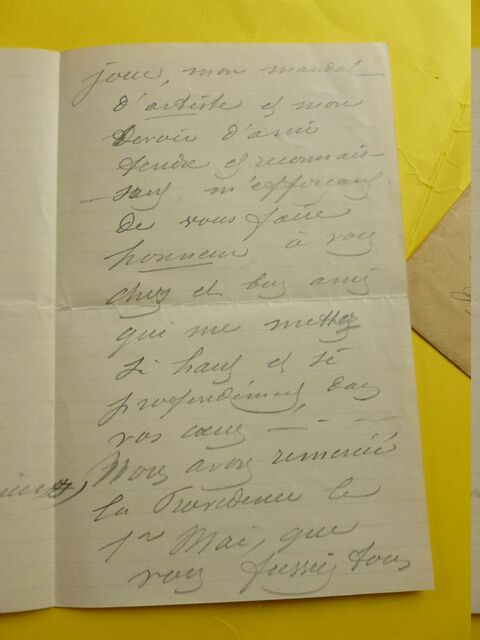 joue, mon mandat
d'artiste et mon
devoir d'ami
tendre et reconnais-
sant, m'efforçant
de vous faire
honneur, à vous
chers et bons amis
qui me mettez
si haut et si
profondément dans
vos cœurs — — —
Nous avons remercié
la Providence le
1er Mai, que
vous fussiez tous